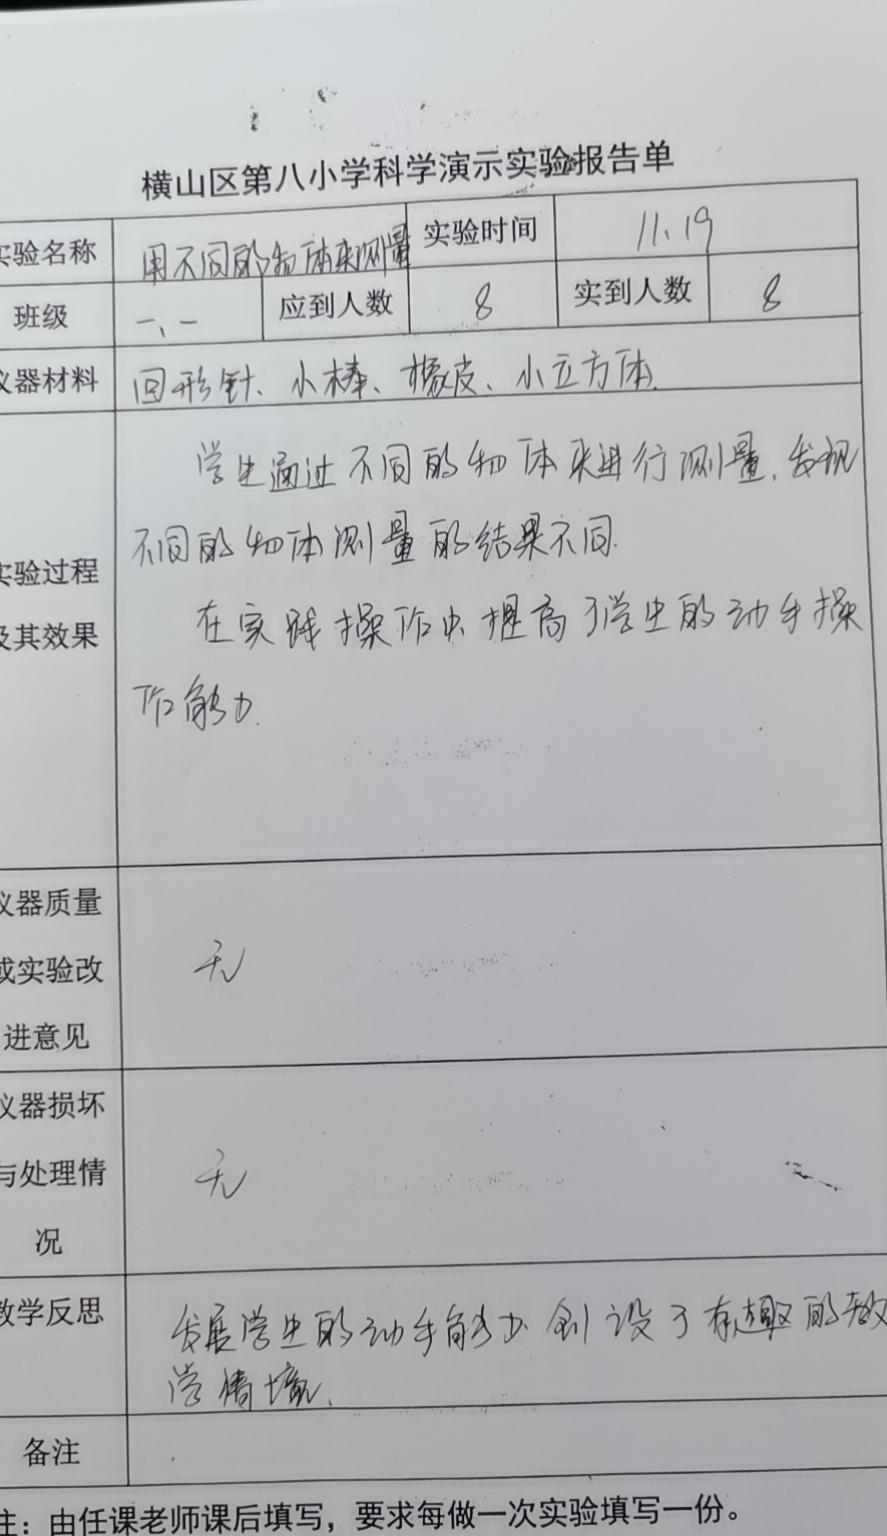 横山区第八小学科学演示实验报告单
实验名称 用不同的物体来测量 实验时间 11.19
班级 一、一 应到人数 8 实到人数 8
仪器材料 回形针、小棒、橡皮、小立方体.
学生通过不同的物体来进行测量,发现
不同的物体测量的结果不同.
实验过程
及其效果
在实践操作中提高了学生的动手操
作能力.
仪器质量
或实验改
进意见
无
仪器损坏
与处理情
况
无
教学反思
发展学生的动手能力 创设了有趣的教
学情境.
备注
注:由任课老师课后填写,要求每做一次实验填写一份。